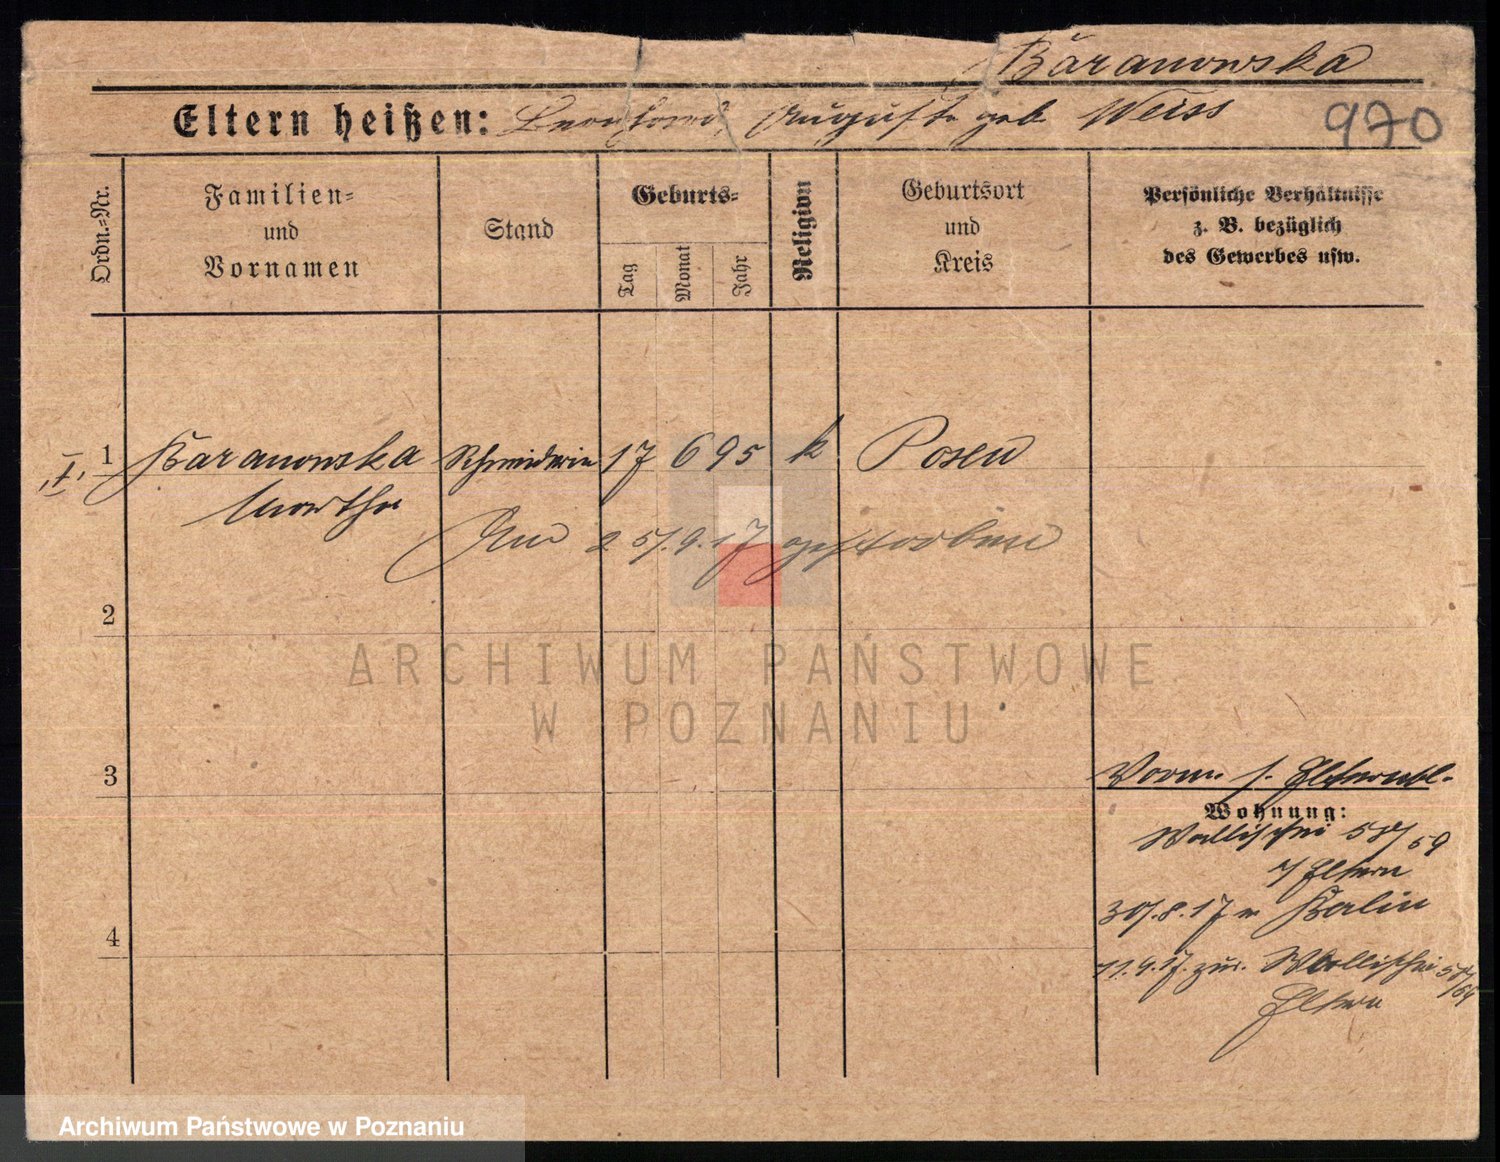 Baranowska
Eltern heißen: Leonhard, Auguste geb Weiss
970
Ordn.=Nr.
Familien=
und
Vornamen
Stand
Geburts=
Tag
Monat
Jahr
Religion
Geburtsort
und
Kreis
Persönliche Verhältnisse
z. B. bezüglich
des Gewerbes usw.
I. 1 Baranowska Schneiderin 17 6 95 k Posen
Martha
Am 25/.9.17 gestorben
2
ARCHIWUM PAŃSTWOWE
W POZNANIU
3
Vorm. s. Elternbl.
Wohnung:
Wallischei 58/59
b/ Eltern
30/.8.17 n. Berlin
4
11.9.17. zur. Wallischei
Eltern
Archiwum Państwowe w Poznaniu